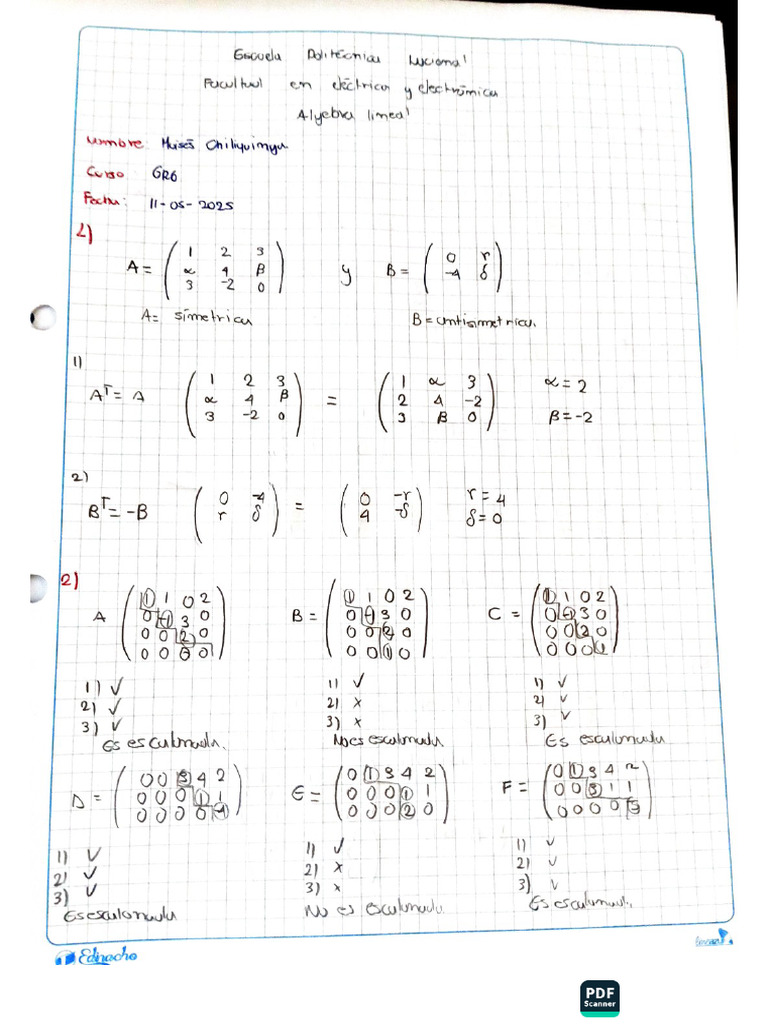 Escuela Politécnica Nacional
Facultad en eléctrica y electrónica
Algebra lineal
Nombre: Moisés Chiliquinga
Curso GR6
Fecha: 11-05-2025
1)
A = ( 1 2 3 ; α 4 β ; 3 -2 0 ) y B = ( 0 r ; -4 δ )
A = simetrica B = antisimetrica.
1)
Aᵀ = A ( 1 2 3 ; α 4 β ; 3 -2 0 ) = ( 1 α 3 ; 2 4 -2 ; 3 β 0 ) α = 2 β = -2
2)
Bᵀ = -B ( 0 -4 ; r δ ) = ( 0 -r ; 4 -δ ) r = 4 δ = 0
2)
A ( 1 1 0 2 ; 0 -1 3 0 ; 0 0 2 0 ; 0 0 0 0 ) B = ( 1 1 0 2 ; 0 -1 3 0 ; 0 0 2 0 ; 0 0 1 0 ) C = ( 1 1 0 2 ; 0 -1 3 0 ; 0 0 2 0 ; 0 0 0 1 )
1) ✓ 1) ✓ 1) ✓
2) ✓ 2) x 2) ✓
3) ✓ 3) x 3) ✓
Es escalonada. No es escalonada Es escalonada
D = ( 0 0 3 4 2 ; 0 0 0 1 1 ; 0 0 0 0 -4 ) E = ( 0 1 3 4 2 ; 0 0 0 1 1 ; 0 0 0 2 0 ) F = ( 0 1 3 4 2 ; 0 0 3 1 1 ; 0 0 0 0 5 )
1) ✓ 1) ✓ 1) ✓
2) ✓ 2) x 2) ✓
3) ✓ 3) x 3) ✓
Es escalonada No es escalonada Es escalonada.
Ednacho
PDF
Scanner